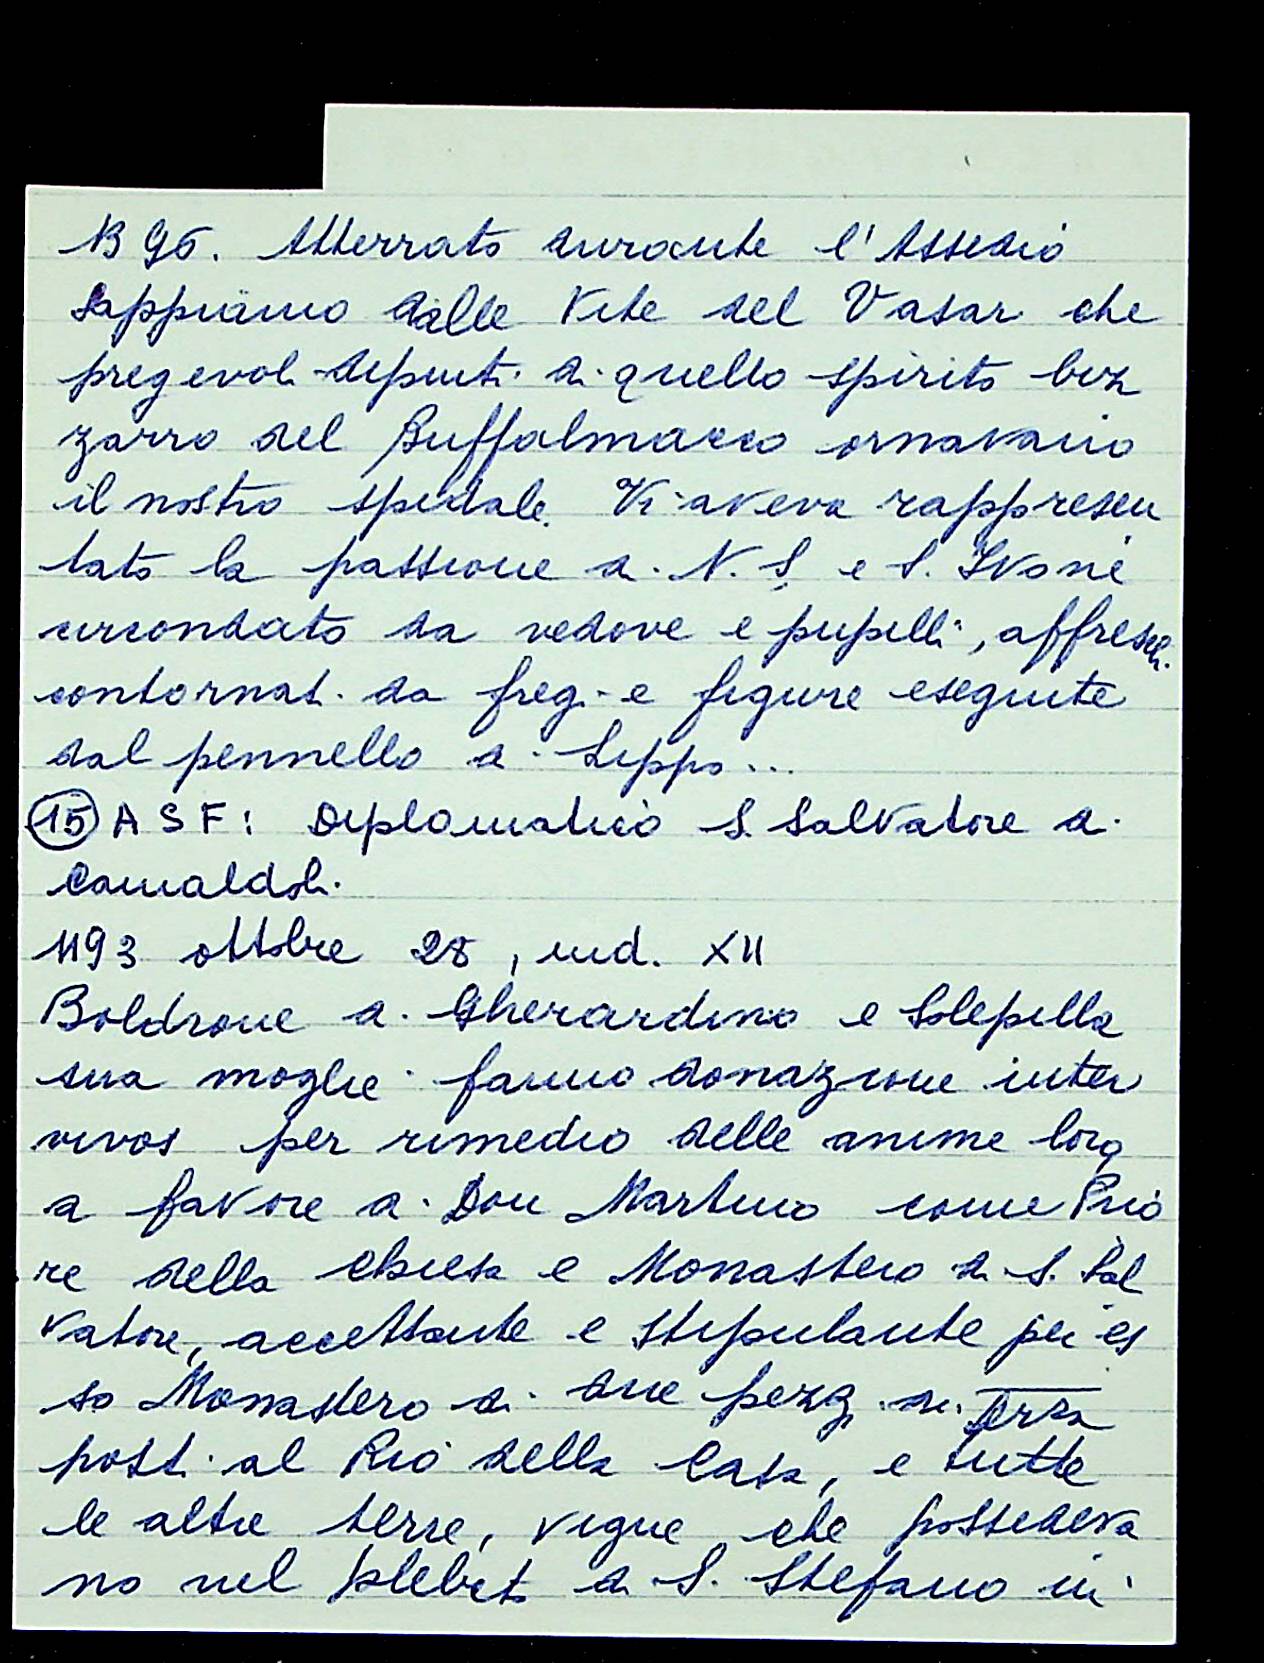 N 96. Atterrato durante l'Assedio
Sappiamo dalle Vite del Vasari che
pregevoli dipinti di quello spirito biz
zarro del Buffalmacco ornavano
il nostro spedale. Vi aveva rappresen
tato la passione di N. S. e S. Ivone
circondato da vedove e pupilli, affreschi
contornati da fregi e figure eseguite
dal pennello di Lippo...
(15) A S F: Diplomatico S. Salvatore di
Camaldoli.
1193 ottobre 28, ind. XII
Boldrone di Gherardino e Solepilla
sua moglie fanno donazione inter
vivos per rimedio delle anime loro
a favore di Don Martino come Prio
re della Chiesa e Monastero di S. Sal
vatore, accettante e stipulante per es
so Monastero di due pezzi di Terra
posti al Rio della Casa, e tutte
le altre terre, vigne che possedeva
no nel plebato di S. Stefano in